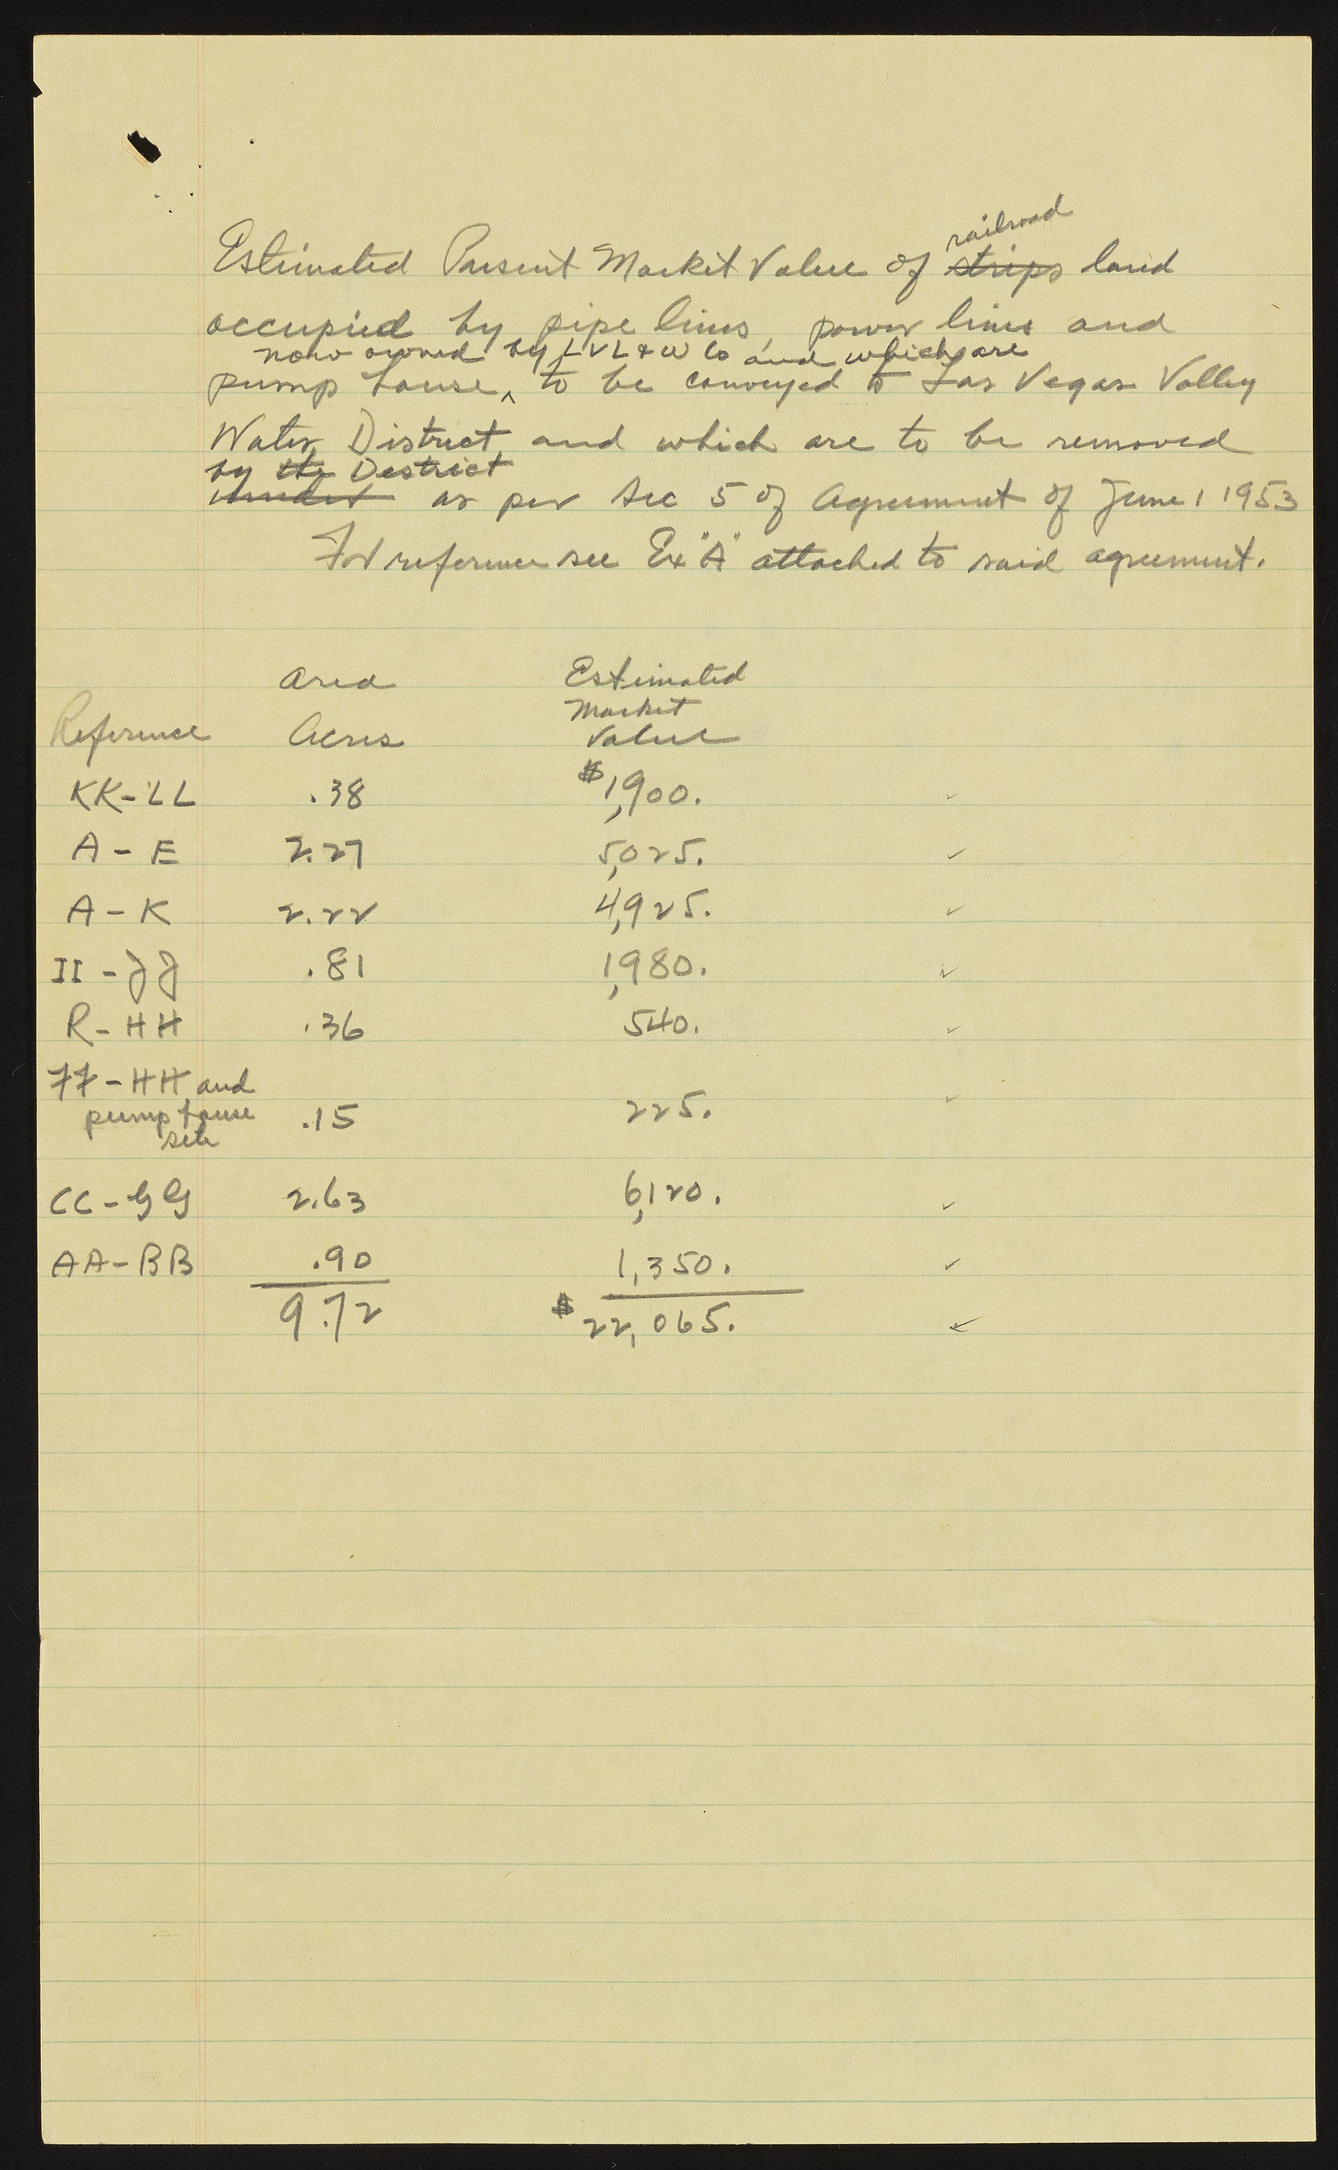 railroad
Estimated Present Market Value of strips land
occupied by pipe lines, power lines and
now owned by L V L & W Co and which are
pump house, to be conveyed to Las Vegas Valley
Water District and which are to be removed
by the District
under as per Sec 5 of Agreement of June 1 1953
For reference see Ex "A" attached to said agreement.
Area Estimated
Market
Reference Acres Value
KK-LL .38 $1,900.
A-E 2.27 5,025.
A-K 2.22 4,925.
II-JJ .81 1,980.
R-HH .36 540.
FF-HH and
pump house .15 225.
site
CC-GG 2.63 6,120.
AA-BB .90 1,350.
9.72 $22,065.